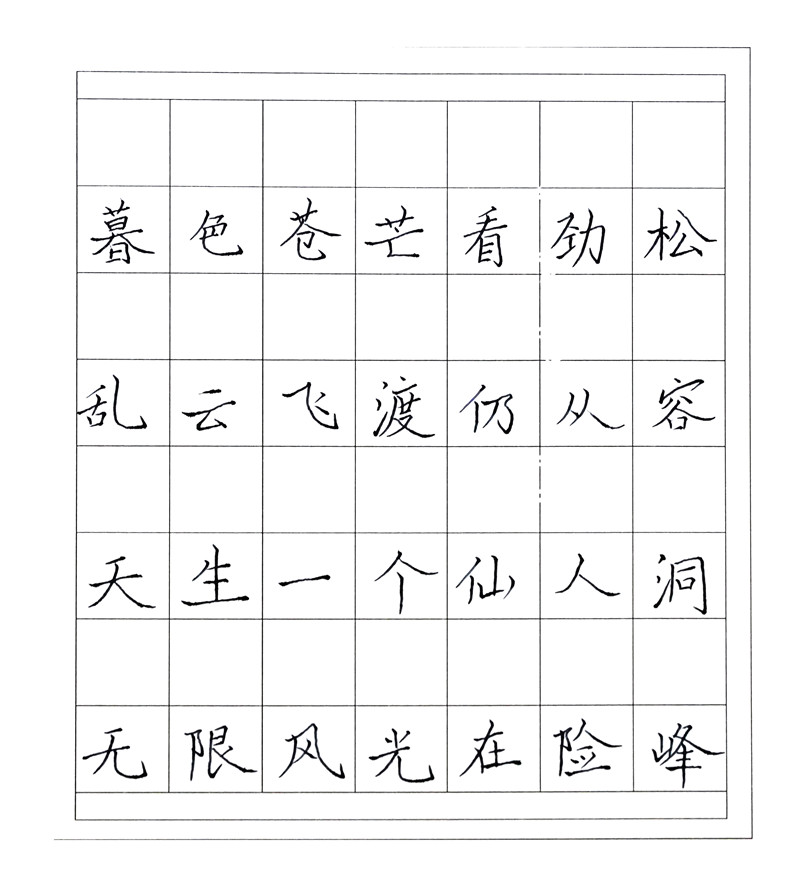 暮色苍芒看劲松
乱云飞渡仍从容
天生一个仙人洞
无限风光在险峰